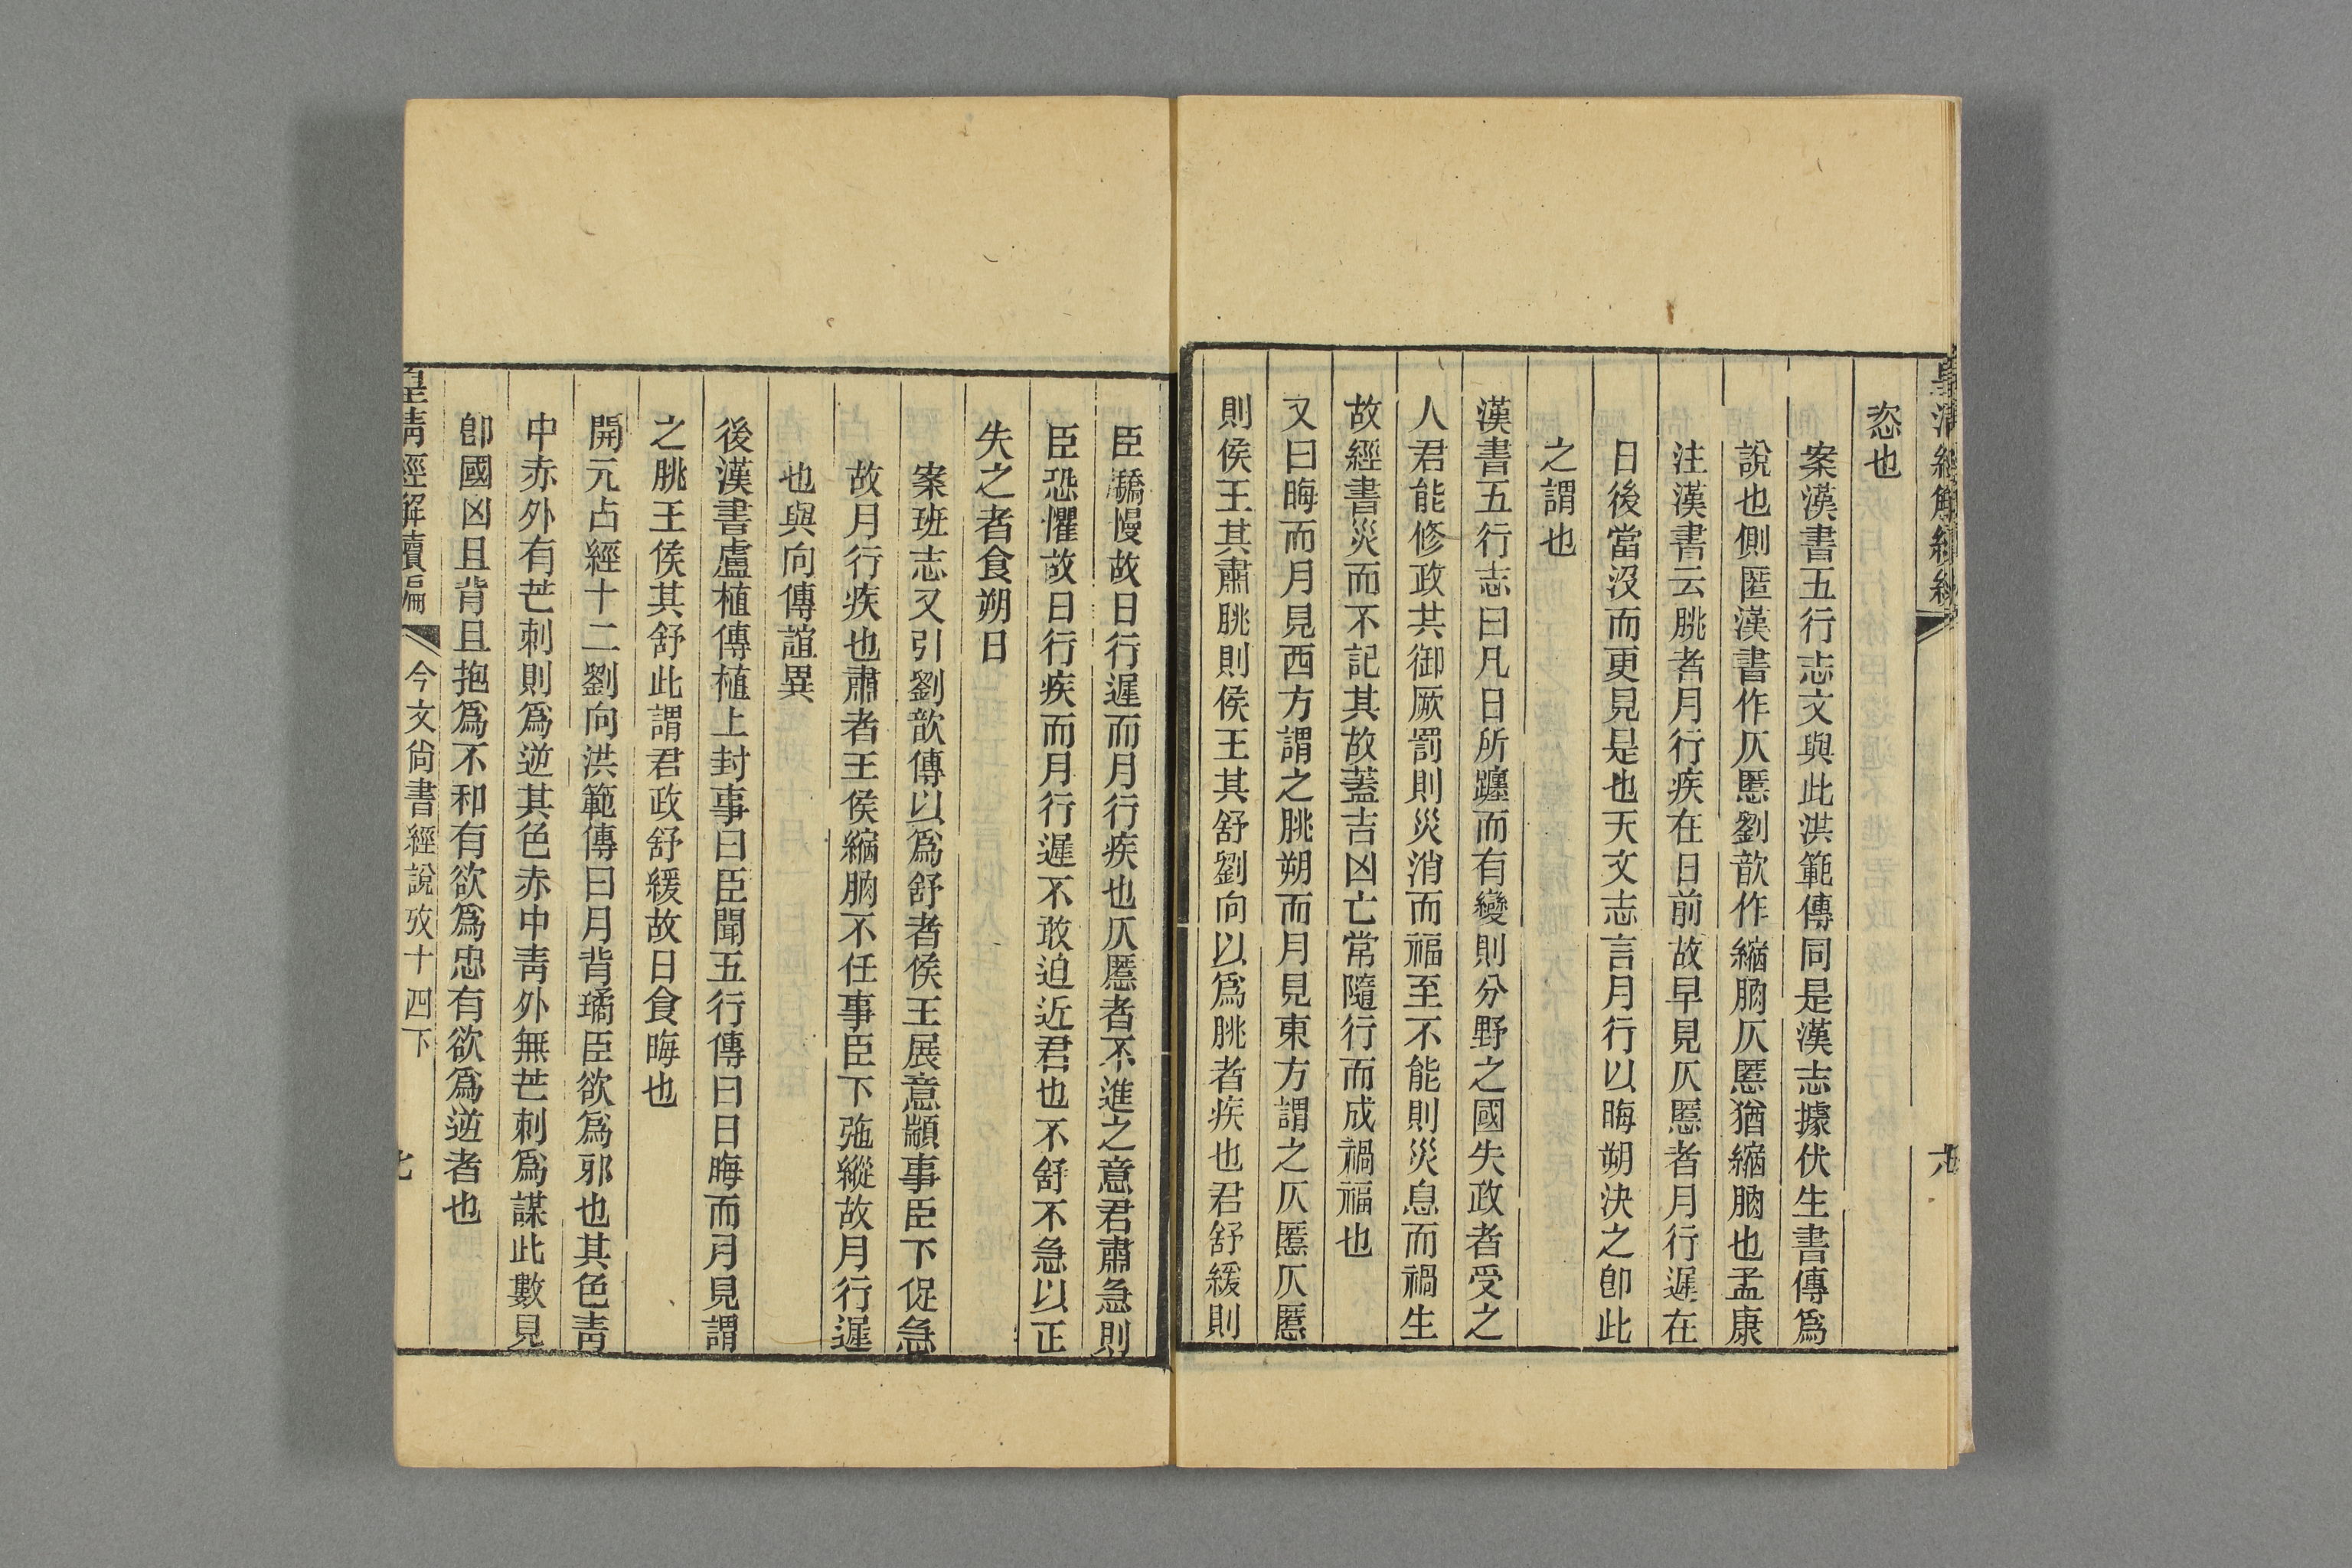 皇清經解續編
恣也
案漢書五行志文與此洪範傳同是漢志據伏生書傳爲
說也側匿漢書作仄慝劉歆作縮朒仄慝猶縮朒也孟康
注漢書云朓者月行疾在日前故早見仄慝者月行遲在
日後當沒而更見是也天文志言月行以晦朔決之卽此
之謂也
漢書五行志曰凡日所躔而有變則分野之國失政者受之
人君能修政共御厥罰則災消而福至不能則災息而禍生
故經書災而不記其故蓋吉凶亡常隨行而成禍福也
又曰晦而月見西方謂之朓朔而月見東方謂之仄慝仄慝
則侯王其肅朓則侯王其舒劉向以爲朓者疾也君舒緩則
臣驕慢故日行遲而月行疾也仄慝者不進之意君肅急則
臣恐懼故日行疾而月行遲不敢迫近君也不舒不急以正
失之者食朔日
案班志又引劉歆傳以爲舒者侯王展意顓事臣下促急
故月行疾也肅者王侯縮朒不任事臣下弛縱故月行遲
也與向傳誼異
後漢書盧植傳植上封事曰臣聞五行傳曰日晦而月見謂
之朓王侯其舒此謂君政舒緩故日食晦也
開元占經十二劉向洪範傳曰月背璚臣欲爲邪也其色靑
中赤外有芒刺則爲逆其色赤中靑外無芒刺爲謀此數見
卽國凶且背且抱爲不和有欲爲忠有欲爲逆者也
皇清經解續編 今文尙書經說攷十四下